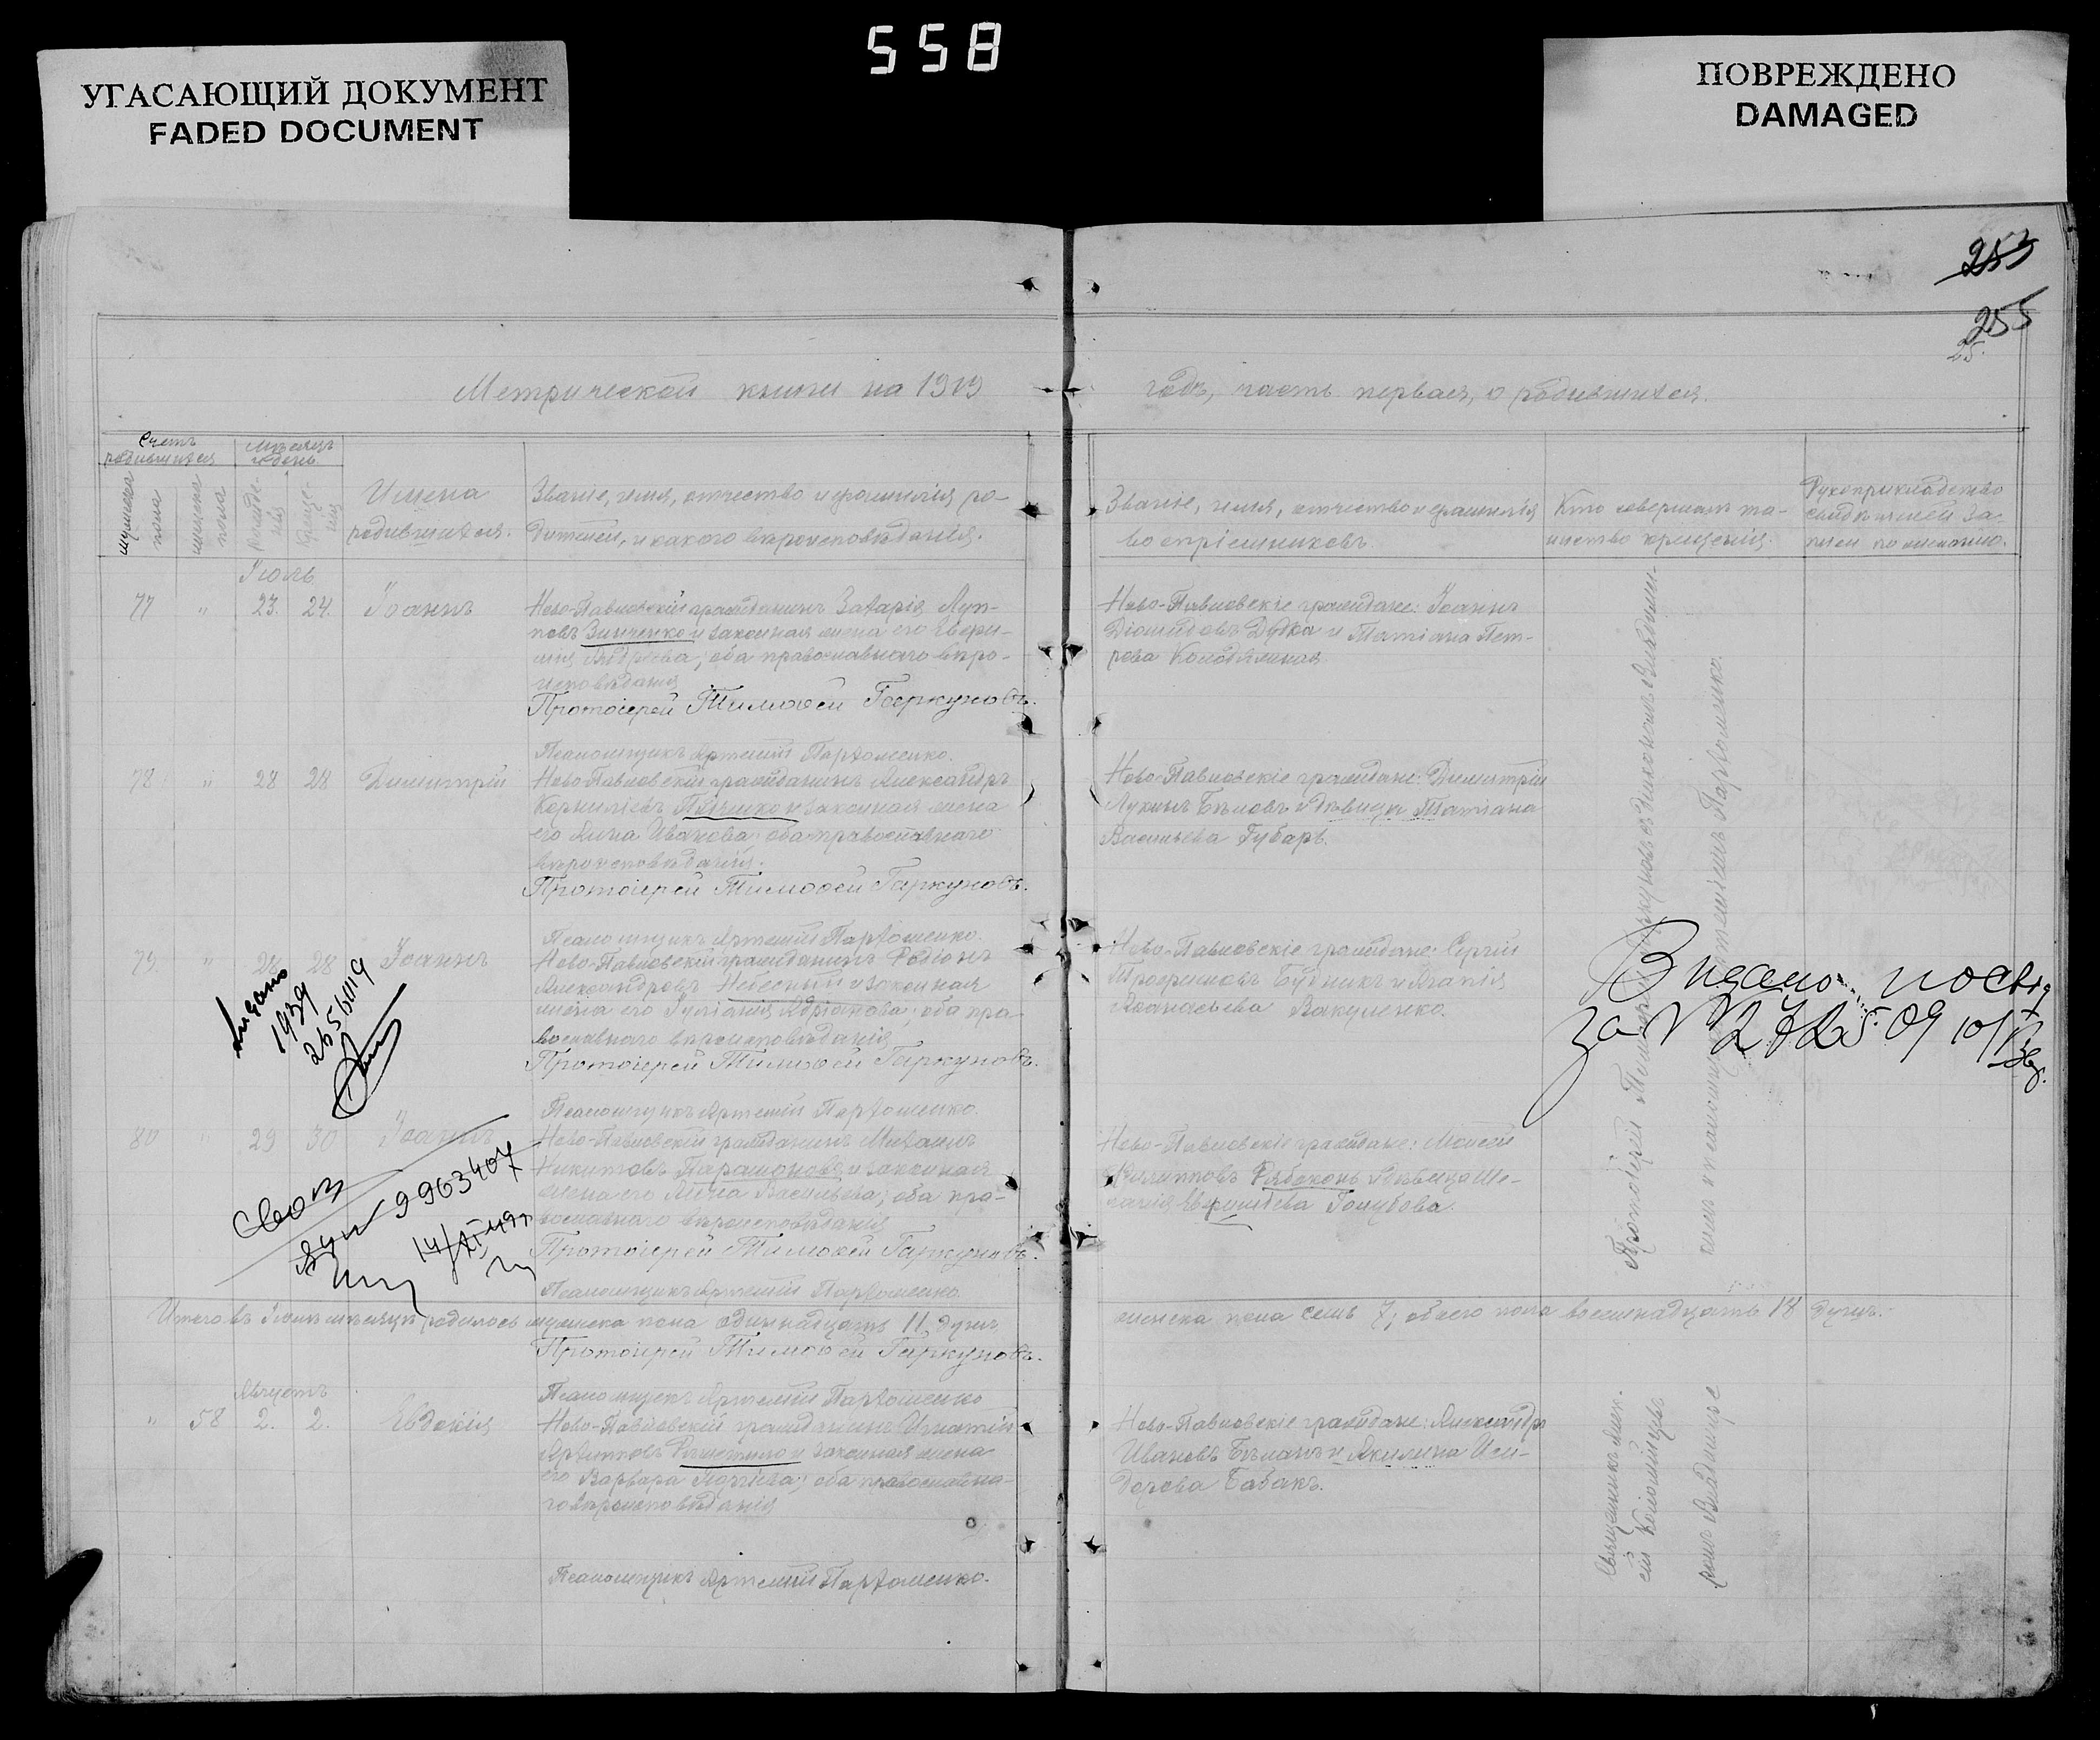 558
УГАСАЮЩИЙ ДОКУМЕНТ
FADED DOCUMENT
ПОВРЕЖДЕНО
DAMAGED
253
255
25.
Метрической книги на 1919
годъ, часть первая, о родившихся.
Счетъ
родившихся
Мѣсяцъ
и день.
мужеска
пола
женска
пола
Рожде-
нія
Креще-
нія
Имена
родившихся.
Званіе, имя, отчество и фамилія ро-
дителей, и какого вѣроисповѣданія.
Званіе, имя, отчество и фамилія
воспріемниковъ.
Кто совершалъ та-
инство крещенія.
Рукоприкладство
свидѣтелей за-
писи по желанію.
Іюль.
77 " 23. 24. Іоаннъ
Ново-Павловскій гражданинъ Захарія Луп-
повъ Зинченко и законная жена его
Андреева; оба православнаго вѣро-
исповѣданія
Протоіерей Тимофей Гаркуновъ.
Псаломщикъ Артемій Пархоменко.
Ново-Павловскіе граждане: Іоаннъ
Діомидовъ Дудка и Татіана Пет-
рова
78 " 28 28 Димитрій
Ново-Павловскій гражданинъ Александръ
Корниліевъ и законная жена
его Анна Иванова; оба православнаго
вѣроисповѣданія.
Протоіерей Тимофей Гаркуновъ.
Псаломщикъ Артемій Пархоменко.
Ново-Павловскіе граждане: Димитрій
Лукинъ Бѣловъ и дѣвица Татіана
Васильева Губарь.
79. " 28 28 Іоаннъ
Ново-Павловскій гражданинъ Родіонъ
Александровъ Небесный и законная
жена его Іуліанія Адріанова; оба пра-
вославнаго вѣроисповѣданія
Протоіерей Тимофей Гаркуновъ.
Псаломщикъ Артемій Пархоменко.
Ново-Павловскіе граждане: Сергій
Трофимовъ Будникъ и Агапія
Афанасьева Вакуленко.
1939
80 " 29 30 Іоаннъ
Ново-Павловскій гражданинъ Михаилъ
Никитовъ Парамоновъ и законная
жена его Анна Васильева; оба пра-
вославнаго вѣроисповѣданія
Протоіерей Тимофей Гаркуновъ.
Псаломщикъ Артемій Пархоменко.
Ново-Павловскіе граждане: Моисей
Филипповъ Рябоконь и дѣвица Ме-
ланія Голубова.
9963407
Видано
за №
Протоіерей Тимофей Гаркуновъ съ діакономъ
и псаломщикомъ Артеміемъ Пархоменко.
Итого въ Іюлѣ мѣсяцѣ родилось мужеска пола одиннадцать 11 душъ
женска пола семь 7, обоего пола восемнадцать 18 душъ.
Протоіерей Тимофей Гаркуновъ.
Псаломщикъ Артемій Пархоменко
Августъ
" 58 2. 2. Евдокія
Ново-Павловскій гражданинъ Игнатій
Архиповъ Решетило и законная жена
его Варвара Георгіева; оба православна-
го вѣроисповѣданія
Псаломщикъ Артемій Пархоменко.
Ново-Павловскіе граждане: Александръ
Ивановъ Бѣланъ и Акилина Иси-
дорова Бабакъ.
Священникъ Алек-
сій Коломійцевъ